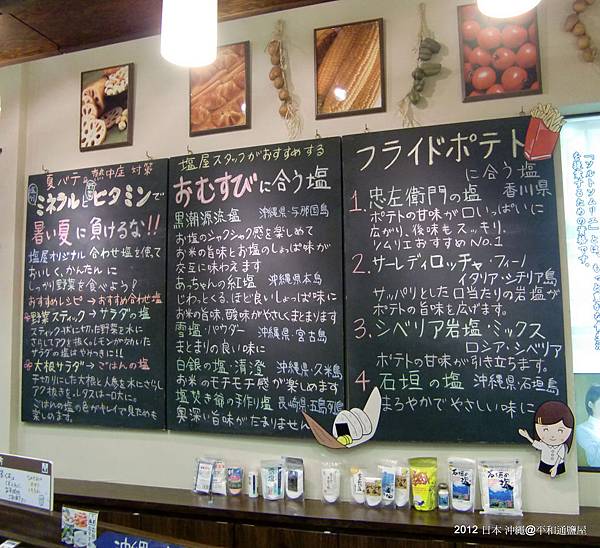 夏バテ・熱中症 対策
ミネラル&ビタミンで
暑い夏に負けるな!!
塩屋オリジナル合わせ塩を使って
おいしく、かんたんに
しっかり野菜を食べよう!
おすすめレシピ→おすすめ合わせ塩
野菜スティック→サラダの塩
スティック状に切った野菜を水に
さらしてアクを抜く。レモンがなかった
サラダの塩はやみつきに!!
大根サラダ→ごはんの塩
千切りにした大根と人参を水にさらし
アク抜きを。レタスは一口大に。
ごはんの塩の色がキレイで見ためも
楽しめます。
塩屋スタッフがおすすめする
おむすびに合う塩
黒潮源流塩 沖縄県・与那国島
お塩のシャクシャク感を楽しめて
お米の旨味とお塩のしょっぱ味が
交互に味わえます
あっちゃんの紅塩 沖縄県本島
じわ〜っとくる、ほど良いしょっぱ味に
お米の旨味、酸味がやさしくまとまります
雪塩・パウダー 沖縄県・宮古島
まとまりの良い味に
白銀の塩・清澄 沖縄県・久米島
お米のモチモチ感が楽しめます
塩炊き爺の手作り塩 長崎県・五島列島
奥深い旨味がたまりません
フライドポテト
に合う塩
1. 忠左衛門の塩 香川県
ポテトの甘味が口いっぱいに
広がり、後味もスッキリ。
ソムリエおすすめNo.1
2. サーレ・ディ・ロッチャ・フィーノ
イタリア・シチリア島
サッパリとした口当たりの岩塩が
ポテトの旨味を広げます。
3. シベリア岩塩・ミックス
ロシア・シベリア
ポテトの甘味が引き立ちます。
4 石垣の塩 沖縄県・石垣島
まろやかでやさしい味に
「ソルトソムリエ」とは、もっと
石垣の塩
2012 日本 沖繩@平和通鹽屋